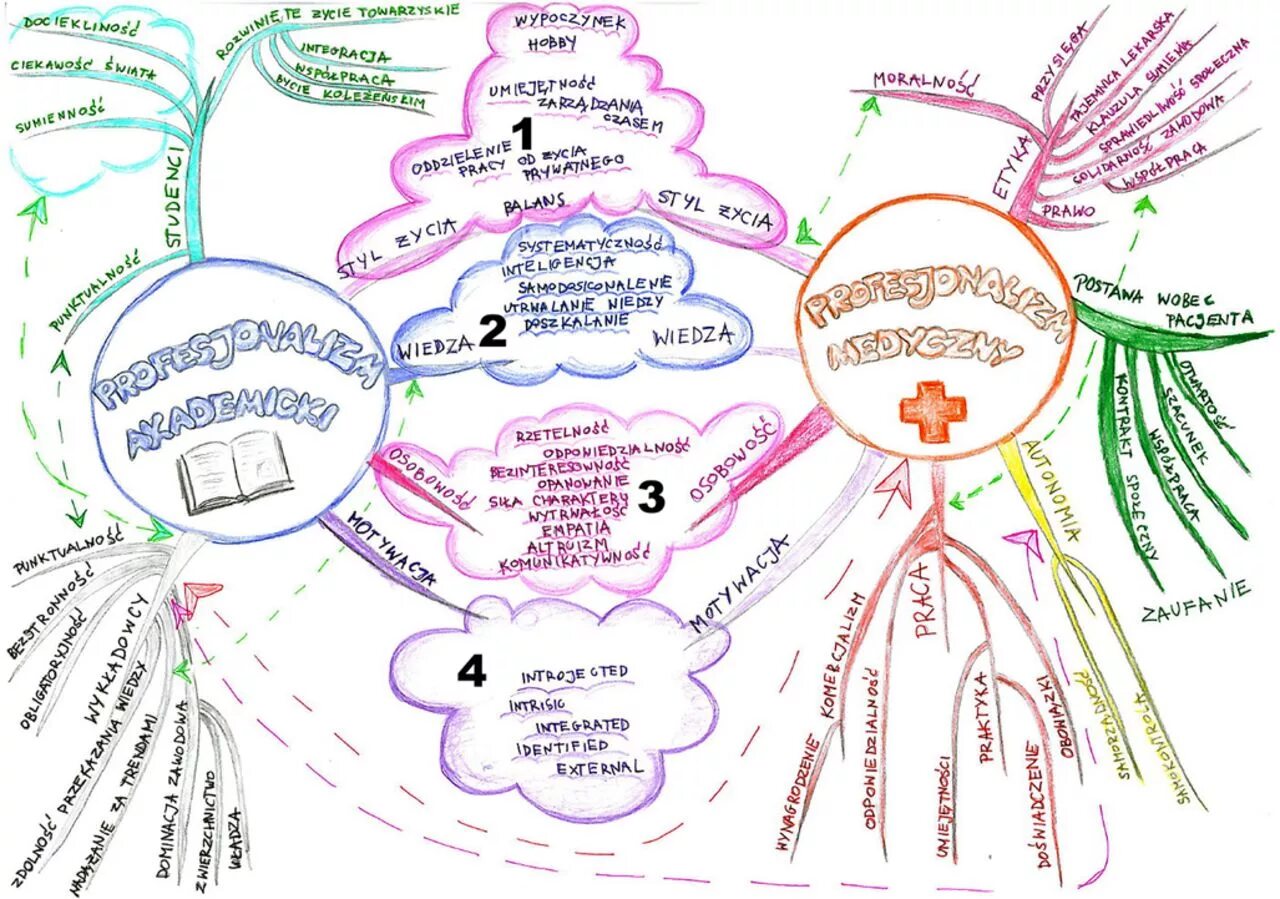 DOCIEKLIWOŚĆ
CIEKAWOŚĆ ŚWIATA
SUMIENNOŚĆ
STUDENCI
ROZWINIĘTE ŻYCIE TOWARZYSKIE
INTEGRACJA
WSPÓŁPRACA
BYCIE KOLEŻEŃSKIM
PUNKTUALNOŚĆ
PROFESJONALIZM
AKADEMICKI
WYPOCZYNEK
HOBBY
UMIEJĘTNOŚĆ
ZARZĄDZANIA
CZASEM
1
ODDZIELENIE
PRACY OD ŻYCIA
PRYWATNEGO
STYL ŻYCIA
BALANS
STYL ŻYCIA
SYSTEMATYCZNOŚĆ
INTELIGENCJA
SAMODOSICONALENIE
UTRWALANIE WIEDZY
DOSZKALANIE
WIEDZA
2
WIEDZA
OSOBOWOŚĆ
RZETELNOŚĆ
ODPOWIEDZIALNOŚĆ
BEZINTERESOWNOŚĆ
OPANOWANIE
SIŁA CHARAKTERU
WYTRWAŁOŚĆ
EMPATIA
ALTRUIZM
KOMUNIKATYWNOŚĆ
3
OSOBOWOŚĆ
MOTYWACJA
4
INTROJECTED
INTRISIC
INTEGRATED
IDENTIFIED
EXTERNAL
MOTYWACJA
PUNKTUALNOŚĆ
BEZSTRONNOŚĆ
OBLIGATORYJNOŚĆ
WYKŁADOWCY
ZDOLNOŚĆ PRZEKAZANIA WIEDZY
NADĄŻANIE ZA TRENDAMI
DOMINACJA ZAWODOWA
ZWIERZCHNICTWO
WŁADZA
PROFESJONALIZM
MEDYCZNY
MORALNOŚĆ
ETYKA
PRZYSIĘGA
TAJEMNICA LEKARSKA
KLAUZULA SUMIENIA
SPRAWIEDLIWOŚĆ SPOŁECZNA
SOLIDARNOŚĆ ZAWODOWA
WSPÓŁPRACA
PRAWO
POSTAWA WOBEC
PACJENTA
OTWARTOŚĆ
SZACUNEK
WSPÓŁPRACA
KONTRAKT SPOŁECZNY
ZAUFANIE
AUTONOMIA
SAMORZĄDNOŚĆ
SAMOKONTROLA
PRACA
KOMERCJALIZM
WYNAGRODZENIE
ODPOWIEDZIALNOŚĆ
UMIEJĘTNOŚCI
PRAKTYKA
DOŚWIADCZENIE
OBOWIĄZKI